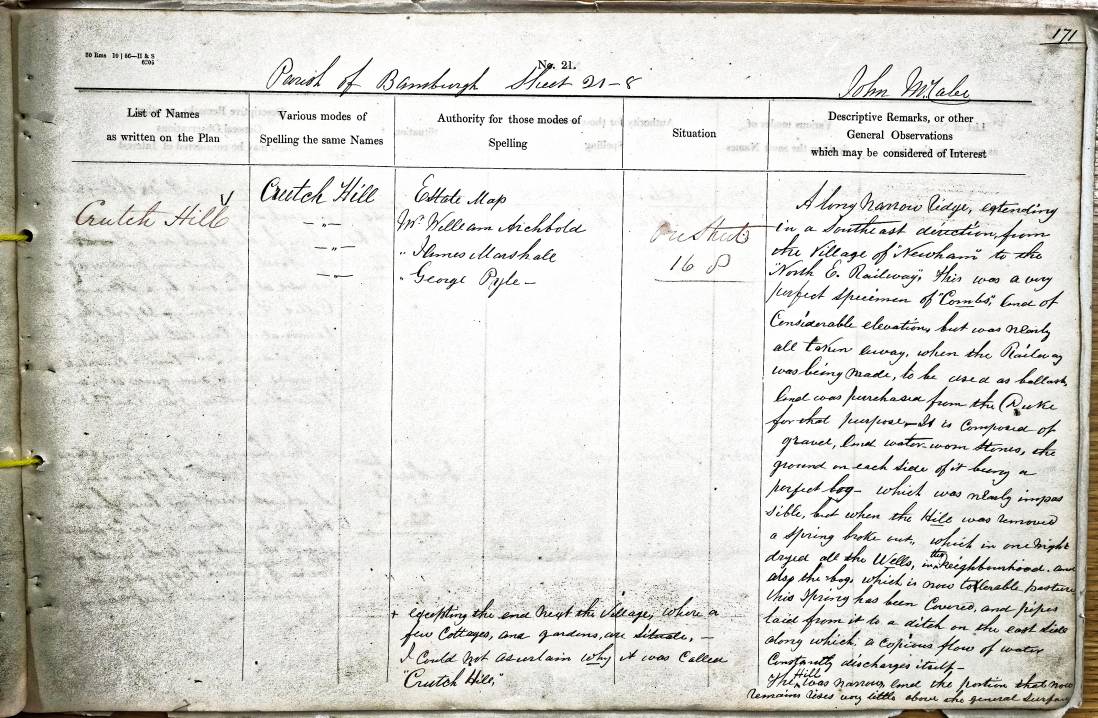 171
20 Rms 10 | 56—H & S
6705
No. 21.
Parish of Bamburgh Sheet 21-8
John McCabe
List of Names
as written on the Plan
Various modes of
Spelling the same Names
Authority for those modes of
Spelling
Situation
Descriptive Remarks, or other
General Observations
which may be considered of Interest
Crutch Hill
Crutch Hill
Estate Map
Mr. William Archbold
" James Marshall
" George Pyle—
On Sheet
16 8
A long narrow ridge, extending
in a Southeast direction, from
the Village of "Newham" to the
"North E. Railway", this was a very
perfect specimen of "Combs", and of
Considerable elevation, but was nearly
all taken away, when the Railway
was being made, to be used as ballast,
and was purchased from the Duke
for that purpose—It is composed of
gravel, and water-worn stones, the
ground on each side of it being a
perfect bog— which was nearly impas
sible, but when the Hill was removed
a Spring broke out, which in one night
dryed all the Wells, in the neighbourhood. and
also the bog, which is now tollerable pasture
this Spring has been Covered, and pipes
laid from it to a ditch on the east side
along which, a copious flow of water
Constantly discharges itself—
The Hill was narrow, and the portion that now
remains rises very little above the general surface
+ excepting the end next the Village, where a
few Cottages, and gardens, are situate,—
I Could not ascertain why it was called
"Crutch Hill,"